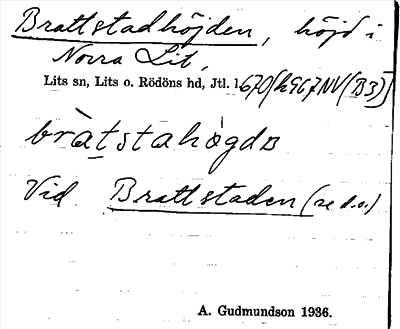 Brattstadhöjden, höjd i
Norra Lit,
Lits sn, Lits o. Rödöns hd, Jtl. 1670/2967NV(B3)
bràtstahögdв
Vid Brattstaden (se d.o.)
A. Gudmundson 1936.